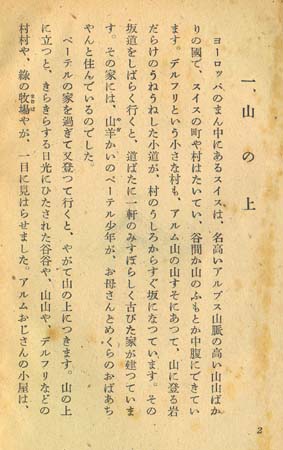 一、山の上
ヨーロッパのまん中にあるスイスは、名高いアルプス山脈の高い山山ばか
りの國で、スイスの町や村はたいてい、谷間か山のふもとか中腹にできてい
ます。デルフリという小さな村も、アルム山の山すそにあつて、山に登る岩
だらけのうねうねした小道が、村のうしろからすぐ坂になつています。その
坂道をしばらく行くと、道ばたに一軒のみすぼらしく古びた家が建つていま
す。その家には、山羊かいのペーテル少年が、お母さんとめくらのおばあち
やんと住んでいるのでした。
ペーテルの家を過ぎて又登つて行くと、やがて山の上につきます。山の上
に立つと、きらきらする日光にひたされた谷谷や、山山や、デルフリなどの
村村や、綠の牧場やが、一目に見はらせました。アルムおじさんの小屋は、
2